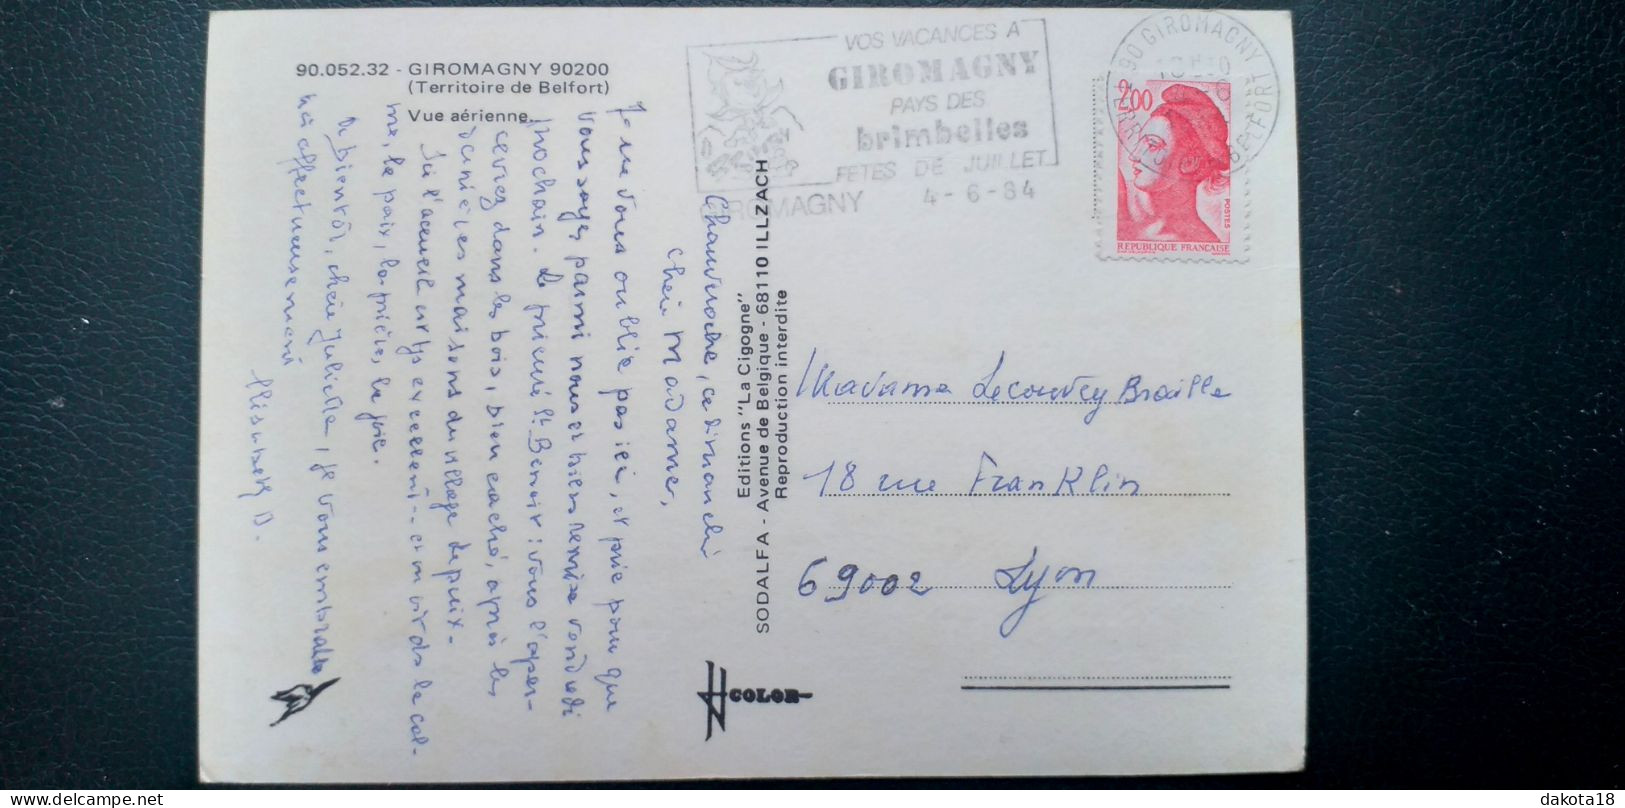 90.052.32 - GIROMAGNY 90200
(Territoire de Belfort)
Vue aérienne
VOS VACANCES A
GIROMAGNY
PAYS DES
brimbelles
FETES DE JUILLET
GIROMAGNY 4-6-84
90 GIROMAGNY
TERRIT. BELFORT
2,00
POSTES
REPUBLIQUE FRANÇAISE
Chauveroche, ce dimanche
Chère Madame,
Je ne vous oublie pas ici, et prie pour que
vous soyez parmi nous et bien remise vendredi
prochain. Le prieuré St Benoît : vous l'aper-
cevez dans les bois, bien caché, après les
dernières maisons du village depuis.
Ici l'accueil est excellent.. et on vit ds le cal-
me, la paix, la prière, la joie.
A bientôt, chère Juliette, je vous embrasse
très affectueusement
Elisabeth D.
Editions "La Cigogne"
SODALFA - Avenue de Belgique - 68110 ILLZACH
Reproduction interdite
COLOR
Madame Lecouvey Braille
18 rue Franklin
69002 Lyon
dakota18